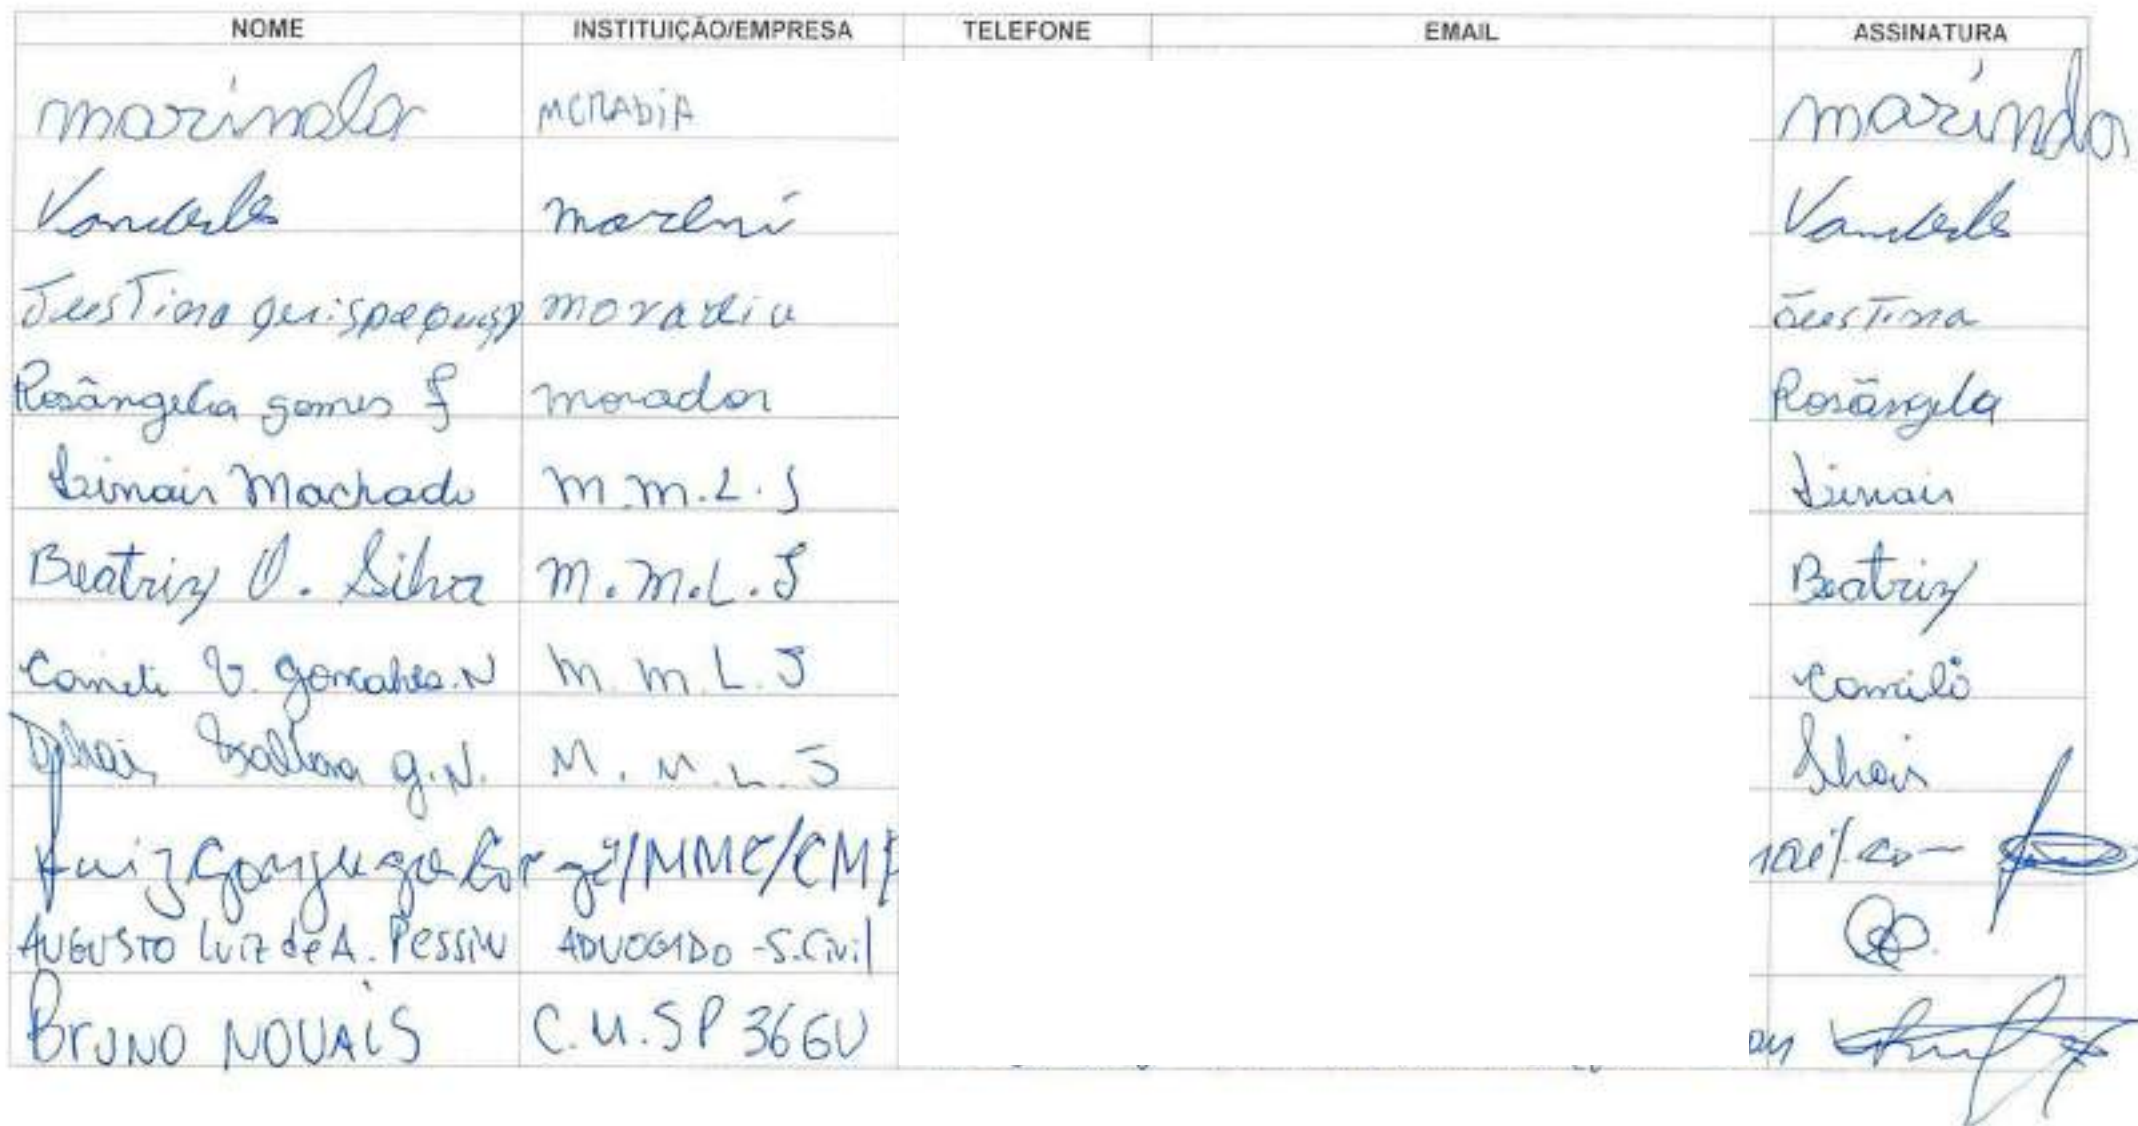 NOME INSTITUIÇÃO/EMPRESA TELEFONE EMAIL ASSINATURA
marinalda MORADIA marinda
Vanderle Vanderle
Justina quispe quisp moradia Justina
Rosângela gomes f morador Rosângela
Linair Machado M.M.L.J Linair
Beatriz O. Silva M.M.L.J Beatriz
V. gonçalves.N M.M.L.J
g.N. M.M.L.J
Luiz Gonzaga /MMC/CMP
AUGUSTO LUIZ de A. Pessin ADVOGADO -S.Civil
BrUNO NOVAIS C.M.SP 36GV